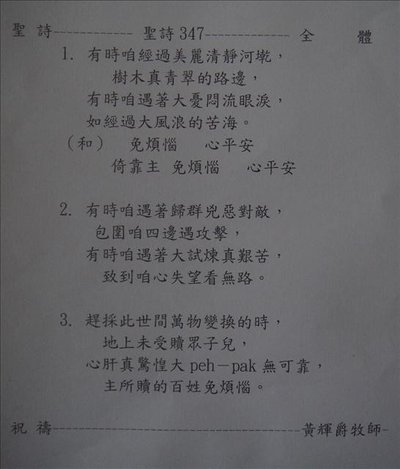 聖 詩------------ 聖詩 347------------- 全 體
1. 有時咱經過美麗清靜河墘，
樹木真青翠的路邊，
有時咱遇著大憂悶流眼淚，
如經過大風浪的苦海。
(和) 免煩惱 心平安
倚靠主 免煩惱 心平安
2. 有時咱遇著歸群兇惡對敵，
包圍咱四邊遇攻擊，
有時咱遇著大試煉真艱苦，
致到咱心失望看無路。
3. 趕採此世間萬物變換的時，
地上未受贖眾子兒，
心肝真驚惶大 peh－pak 無可靠，
主所贖的百姓免煩惱。
祝 禱------------------------------------黃輝爵牧師-